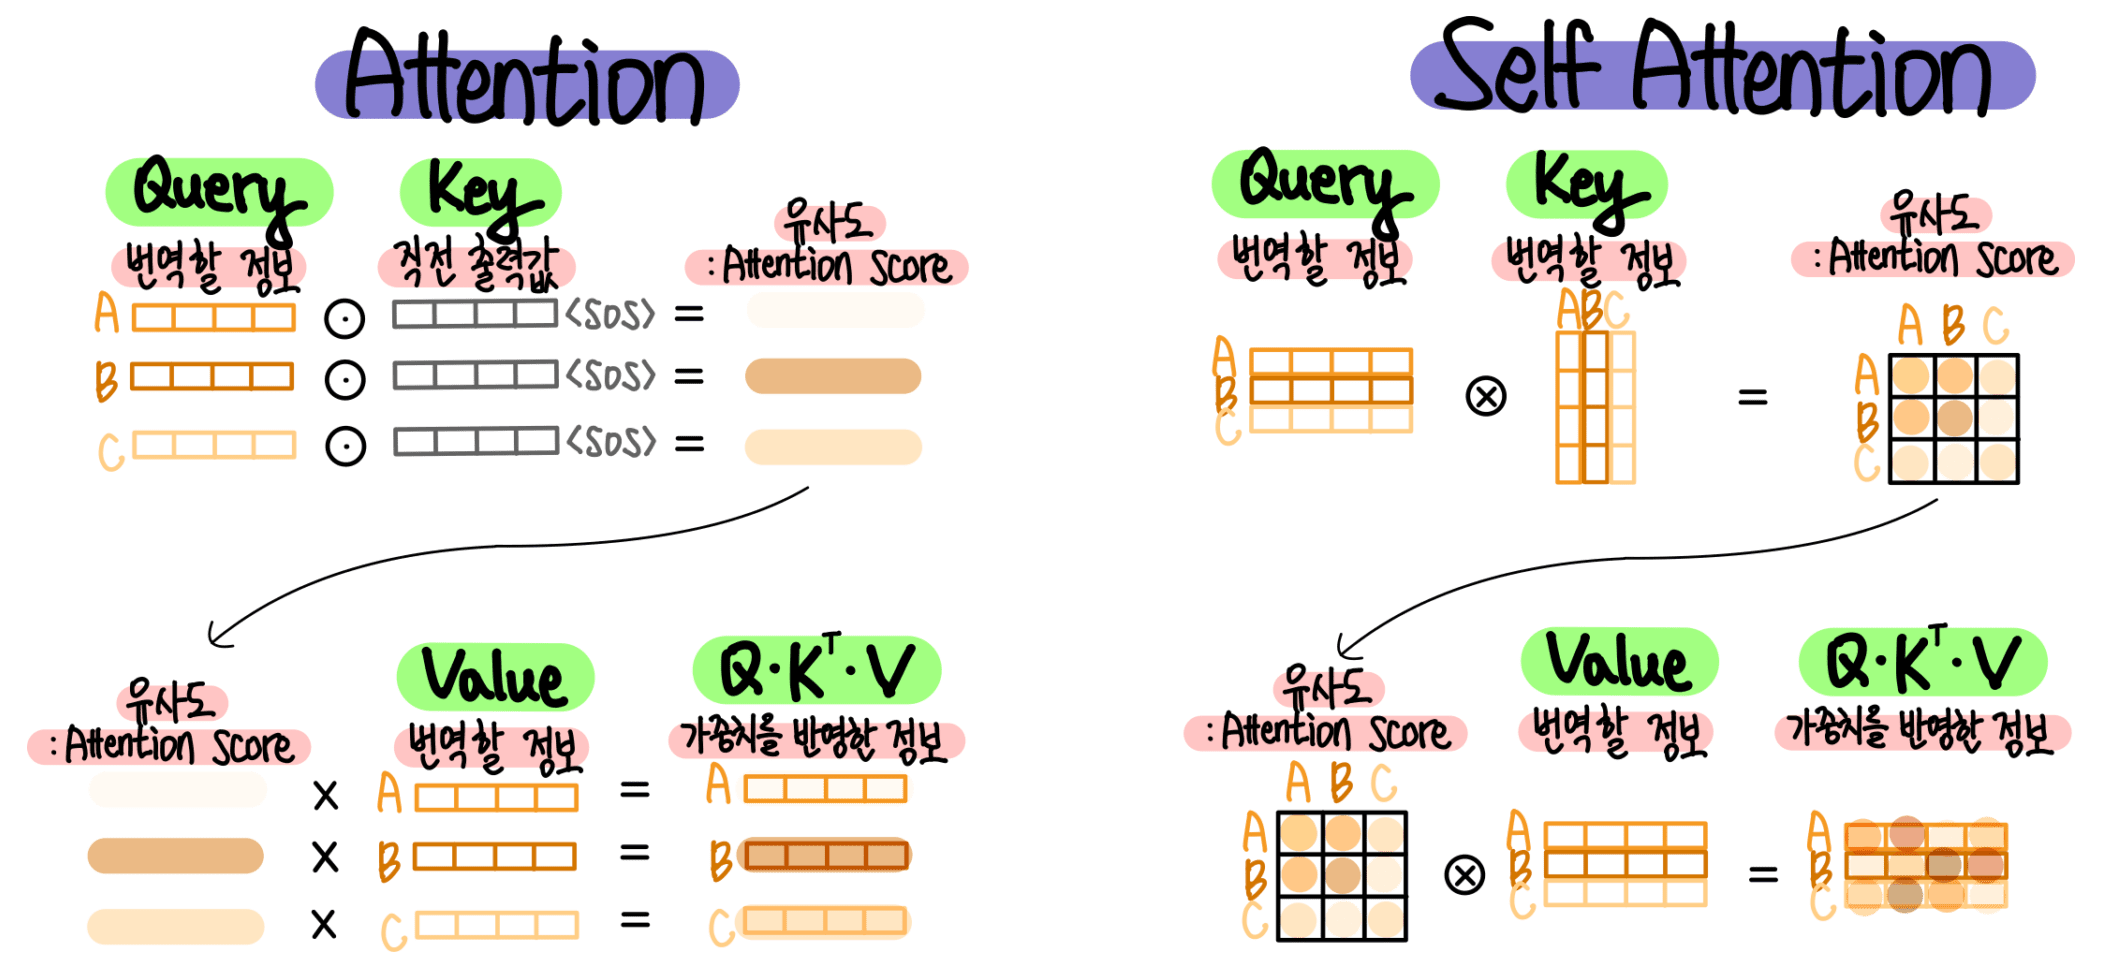 Attention
Query
Key
번역할 정보
직전 출력값
유사도
: Attention Score
A
<SOS> =
B
<SOS> =
C
<SOS> =
유사도
: Attention Score
Value
번역할 정보
Q·Kᵀ·V
가중치를 반영한 정보
× A = A
× B = B
× C = C
Self Attention
Query
Key
번역할 정보
번역할 정보
유사도
: Attention Score
A B C
A
B
C
=
A B C
A
B
C
유사도
: Attention Score
Value
번역할 정보
Q·Kᵀ·V
가중치를 반영한 정보
A B C
A
B
C
A
B
C
=
A
B
C